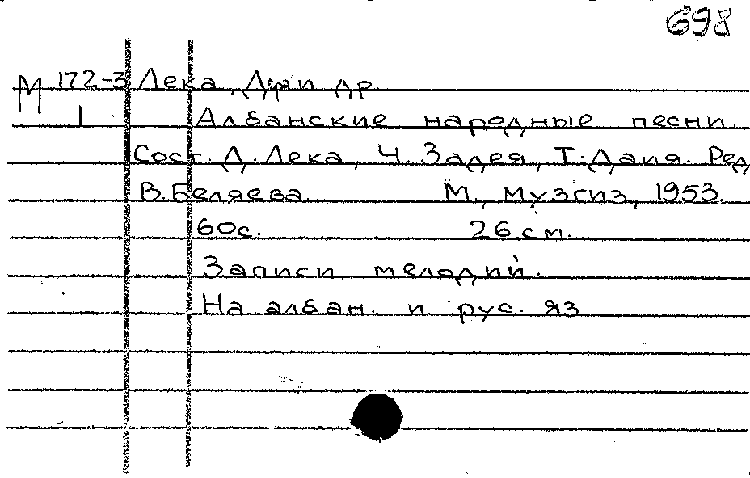 698
М 172-3 Лека, Д. и др.
1 Албанские народные песни.
Сост. Д. Лека, Ч. Задея, Т. Даия. Ред.
В. Беляева. М., Музгиз, 1953.
60с. 26 см.
Записи мелодий.
На албан. и рус. яз